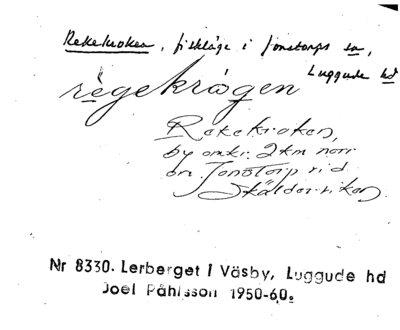 Rekekroken, fiskläge i Jonstorps sn,
Luggude hd
règekrågen
Rekekroken,
by omkr. 2 km norr
om Jonstorp vid
Skälderviken.
Nr 8330. Lerberget i Väsby, Luggude hd
Joel Påhlsson 1950-60.